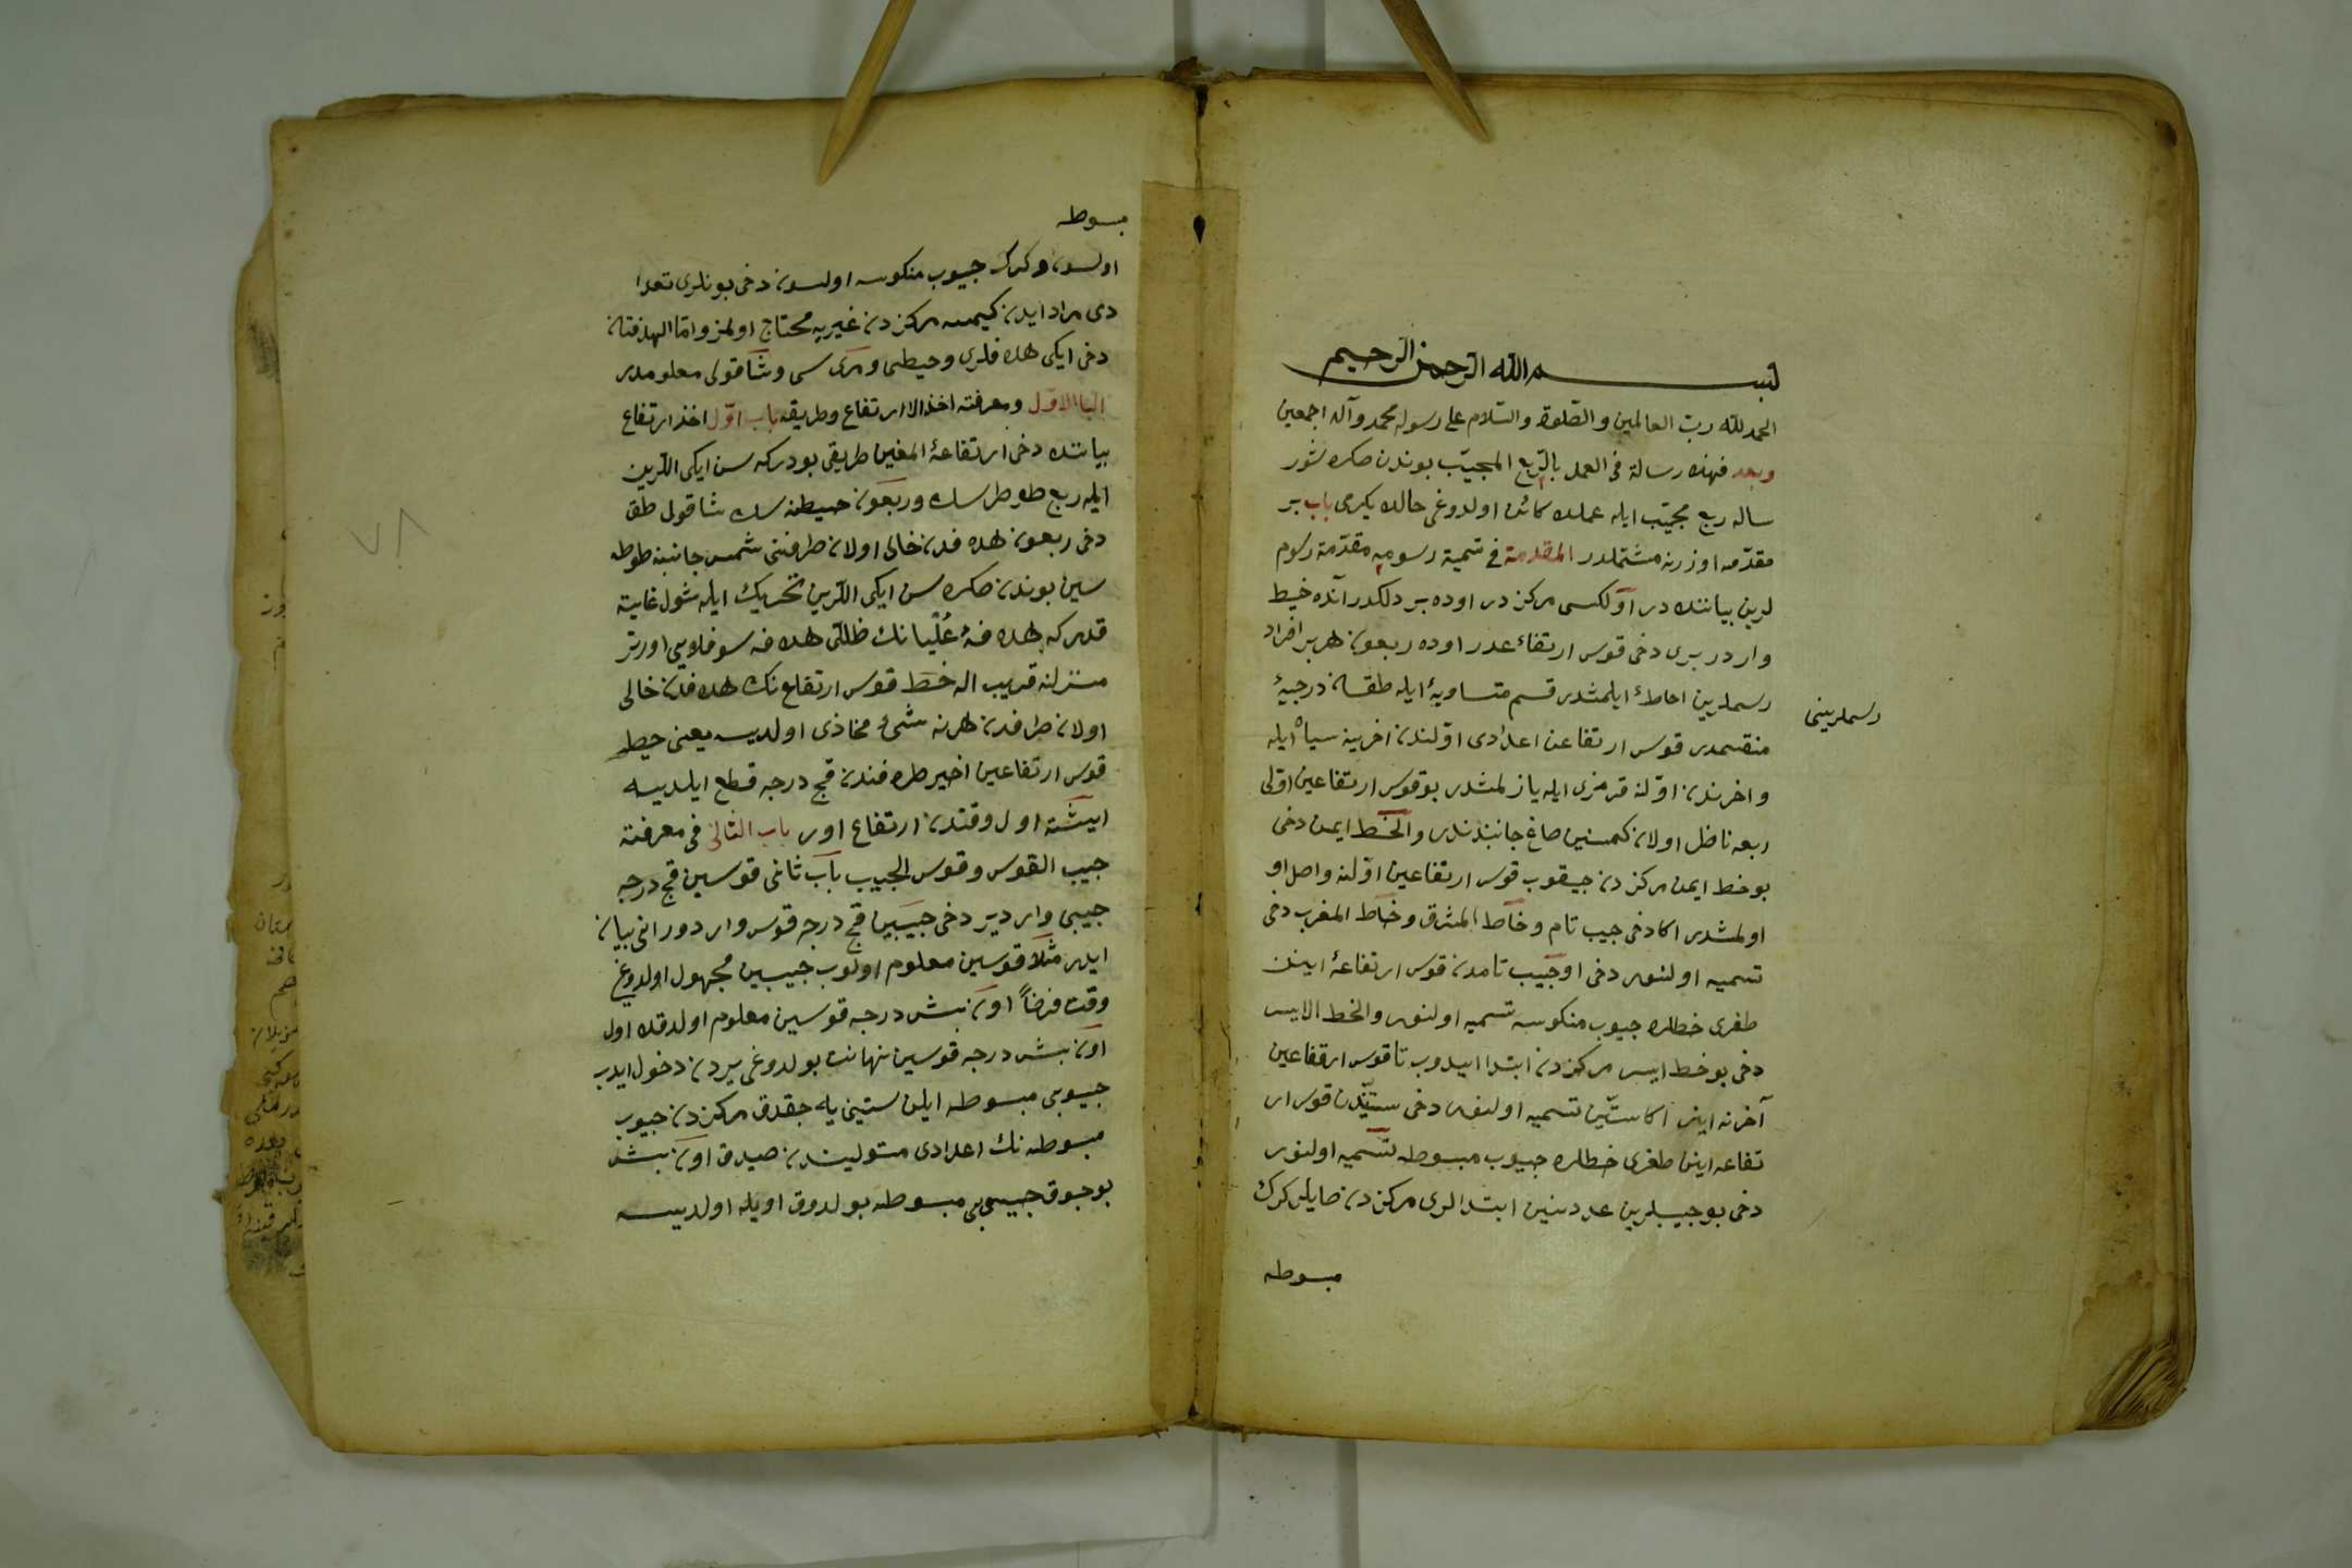 بسم الله الرحمن الرحيم
الحمد لله رب العالمين والصلوة والسلام على رسوله محمد وآله اجمعين
وبعد فهذه رسالة فى العمل بالربع المجيب بوندن صكره شور
ساله ربع مجيب ايله عملده كائن اولدوغى حالده يكرمى باب بر
مقدمه اوزرنه مشتملدر المقدمة فى تسمية رسومه مقدمة رسوم
لرين بياننده در اولكسى مركز در اوده بر دلكدر آنده خيط
واردر برى دخى قوس ارتفاعدر اوده ربعون هر بر افراد
رسملرين احاطۀ ايلمشدر قسم متساويۀ ايله طقسان درجيۀ
رسملرينى
منقسمدر قوس ارتفاعن اعدادى اولندن اخرينه سياه ايله
واخرندن اولنه قرمزى ايله يازلمشدر بو قوس ارتفاعين اولى
ربعه ناظر اولان كمسنين صاغ جانبندندر والخط ايمن دخى
بو خط ايمن مركزدن جيقوب قوس ارتفاعين اولنه واصل او
لمشدر اكا دخى جيب تام وخاط المشرق وخاط المغرب دخى
تسميه اولنور دخى او جيب تامدن قوس ارتفاعۀ اينن
طغرى خطلره جيوب منكوسه تسميه اولنور والخط الايسر
دخى بو خط ايسر مركزدن ابتدا ايدوب تا قوس ارتفاعين
آخرنه اينر اكا ستين تسميه اولنور دخى ستيندن قوس ار
تفاعه اينن طغرى خطلره جيوب مبسوطه تسميه اولنور
دخى بو جيبلرين عددينين ابتدالرى مركزدن صايلر كرك
مبسوطه
مبسوطه
اولسون وكرك جيوب منكوسه اولسون دخى بونلرى تعدا
دى مراد ايدن كيمسه مركزدن غيريه محتاج اولمز واما الهدفتان
دخى ايكى هدفلرى وخيطى ومرى سى وشاقولى معلومدر
الباب الاول ومعرفته اخذ الاارتفاع وطريقه باب اول اخذ ارتفاع
بياننده دخى ارتفاعۀ المغين طريقى بودركه سن ايكى اللرين
ايله ربع طوطرسك وربعون خيطنه سك شاقول طق
دخى ربعون هدفدن خالى اولان طرفنى شمس جانبنه طوطه
سين بوندن صكره سن ايكى اللرين تحريك ايله شول غايته
قدر كه هدفۀ عليانك ظلى هدفه سوفلايى اورتر
منزلنه قريب اله خط قوس ارتفاعنك هدفدن خالى
اولان طرافدن هر نه شئ محاذى اولديسه يعنى خيط
قوس ارتفاعين اخير طرفندن قج درجه قطع ايلديسه
ايشته اول وقتدن ارتفاع اور باب الثانى فى معرفته
جيب القوس وقوس الجيب باب ثانى قوسين قج درجه
جيبى واردير دخى جيبين قج درجه قوس واردور انى بيان
ايلر مثلا قوسين معلوم اولوب جيبين مجهول اولدوغى
وقت فرضاً اون بش درجه قوسين معلوم اولدقده اول
اون بش درجه قوسين نهانت بولدوغى يردن دخول ايدب
جيوبى مبسوطه ايلن ستينى يه جقدق مركزدن جيوب
مبسوطه نك اعدادى متوليندن صيدق اون بش
بوجوق جيبى مبسوطه بولدوق اويله اولديسه